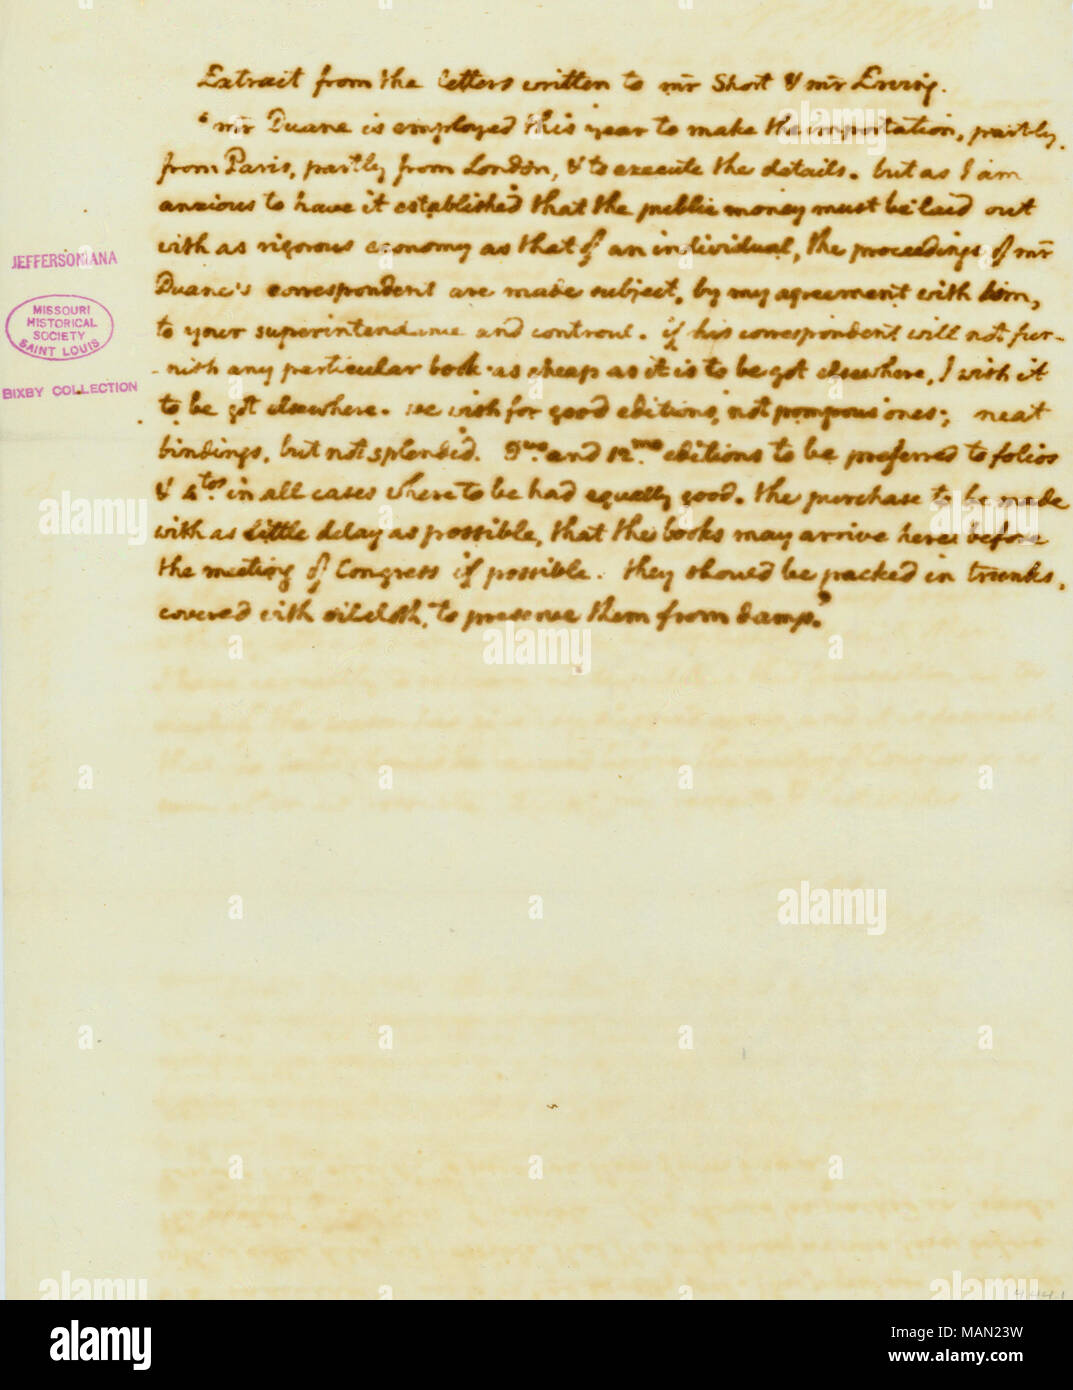 Extract from the letters written to mr Short & mr Erving.
"mr Duane is employed this year to make the importation, partly
from Paris, partly from London, & to execute the details. but as I am
anxious to have it established that the public money must be laid out
with as rigorous economy as that of an individual, the proceedings of mr
Duane's correspondent are made subject, by my agreement with him,
to your superintendance and controul. if his correspondent will not fur-
-nish any particular book as cheap as it is to be got elsewhere, I wish it
to be got elsewhere. we wish for good editions, not pompous ones; neat
bindings, but not splendid. 8vo. and 12mo. editions to be preferred to folios
& 4tos. in all cases where to be had equally good. the purchase to be made
with as little delay as possible, that the books may arrive here before
the meeting of Congress if possible. they should be packed in trunks,
covered with oilcloth, to preserve them from damp."
JEFFERSONIANA
MISSOURI
HISTORICAL
SOCIETY
SAINT LOUIS
BIXBY COLLECTION
alamy
alamy
alamy
alamy
alamy
alamy
alamy
alamy
alamy
a
a
a
a
a
a
a
a
a
alamy
Image ID: MAN23W
www.alamy.com